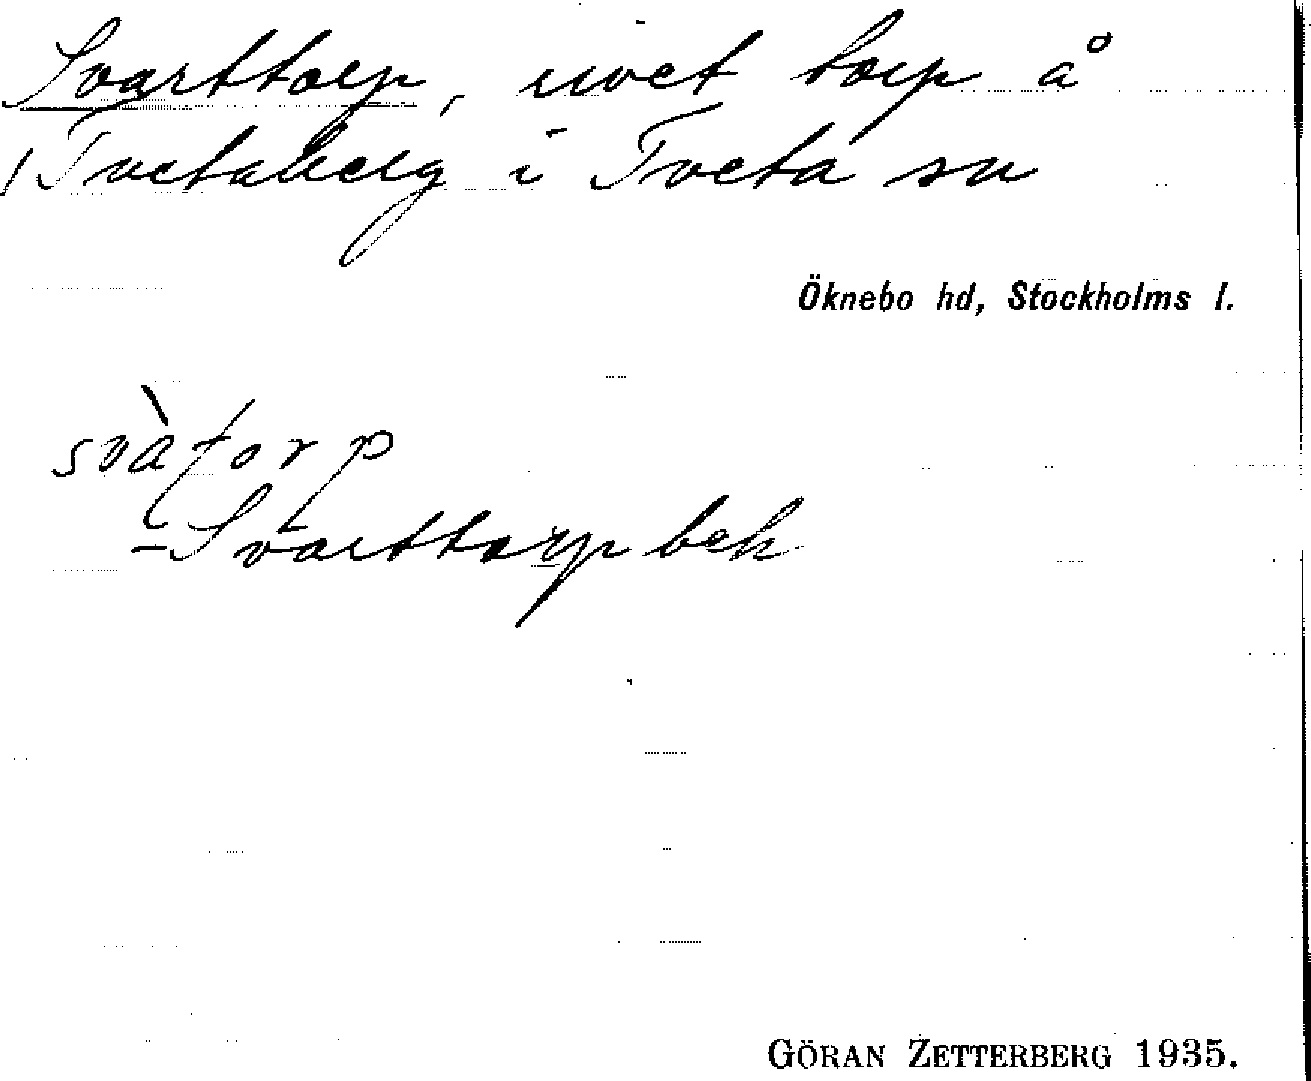 Svarttorp, rivet torp å
Tvetaberg i Tveta sn
Öknebo hd, Stockholms l.
svàtorp
-Svarttorp bek.
GÖRAN ZETTERBERG 1935.